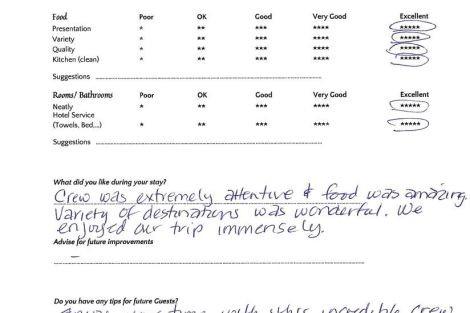 Food Poor OK Good Very Good Excellent
Presentation * ** *** **** *****
Variety * ** *** **** *****
Quality * ** *** **** *****
Kitchen (clean) * ** *** **** *****
Suggestions
Rooms/ Bathrooms Poor OK Good Very Good Excellent
Neatly * ** *** **** *****
Hotel Service
(Towels, Bed,...) * ** *** **** *****
Suggestions
What did you like during your stay?
Crew was extremely attentive & food was amazing.
Variety of destinations was wonderful. We
enjoyed our trip immensely.
Advise for future improvements
–
Do you have any tips for future Guests?
time with this incredible crew